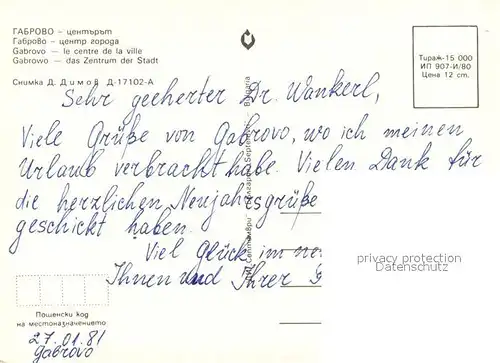 ГАБРОВО – центърът
Габрово – центр города
Gabrovo — le centre de la ville
Gabrowo — das Zentrum der Stadt
Снимка Д. Димов Д-17102-А
Тираж-15 000
ИП 907-И/80
Цена 12 ст.
Sehr geeherter Dr. Wankerl,
Viele Grüße von Gabrovo, wo ich meinen
Urlaub verbracht habe. Vielen Dank für
die herzlichen Neujahrsgrüße
geschickt haben.
Viel Glück im
Ihnen und Ihrer
privacy protection
Datenschutz
Пощенски код
на местоназначението
27.01.81
Gabrovo
Септември
Bulgaria